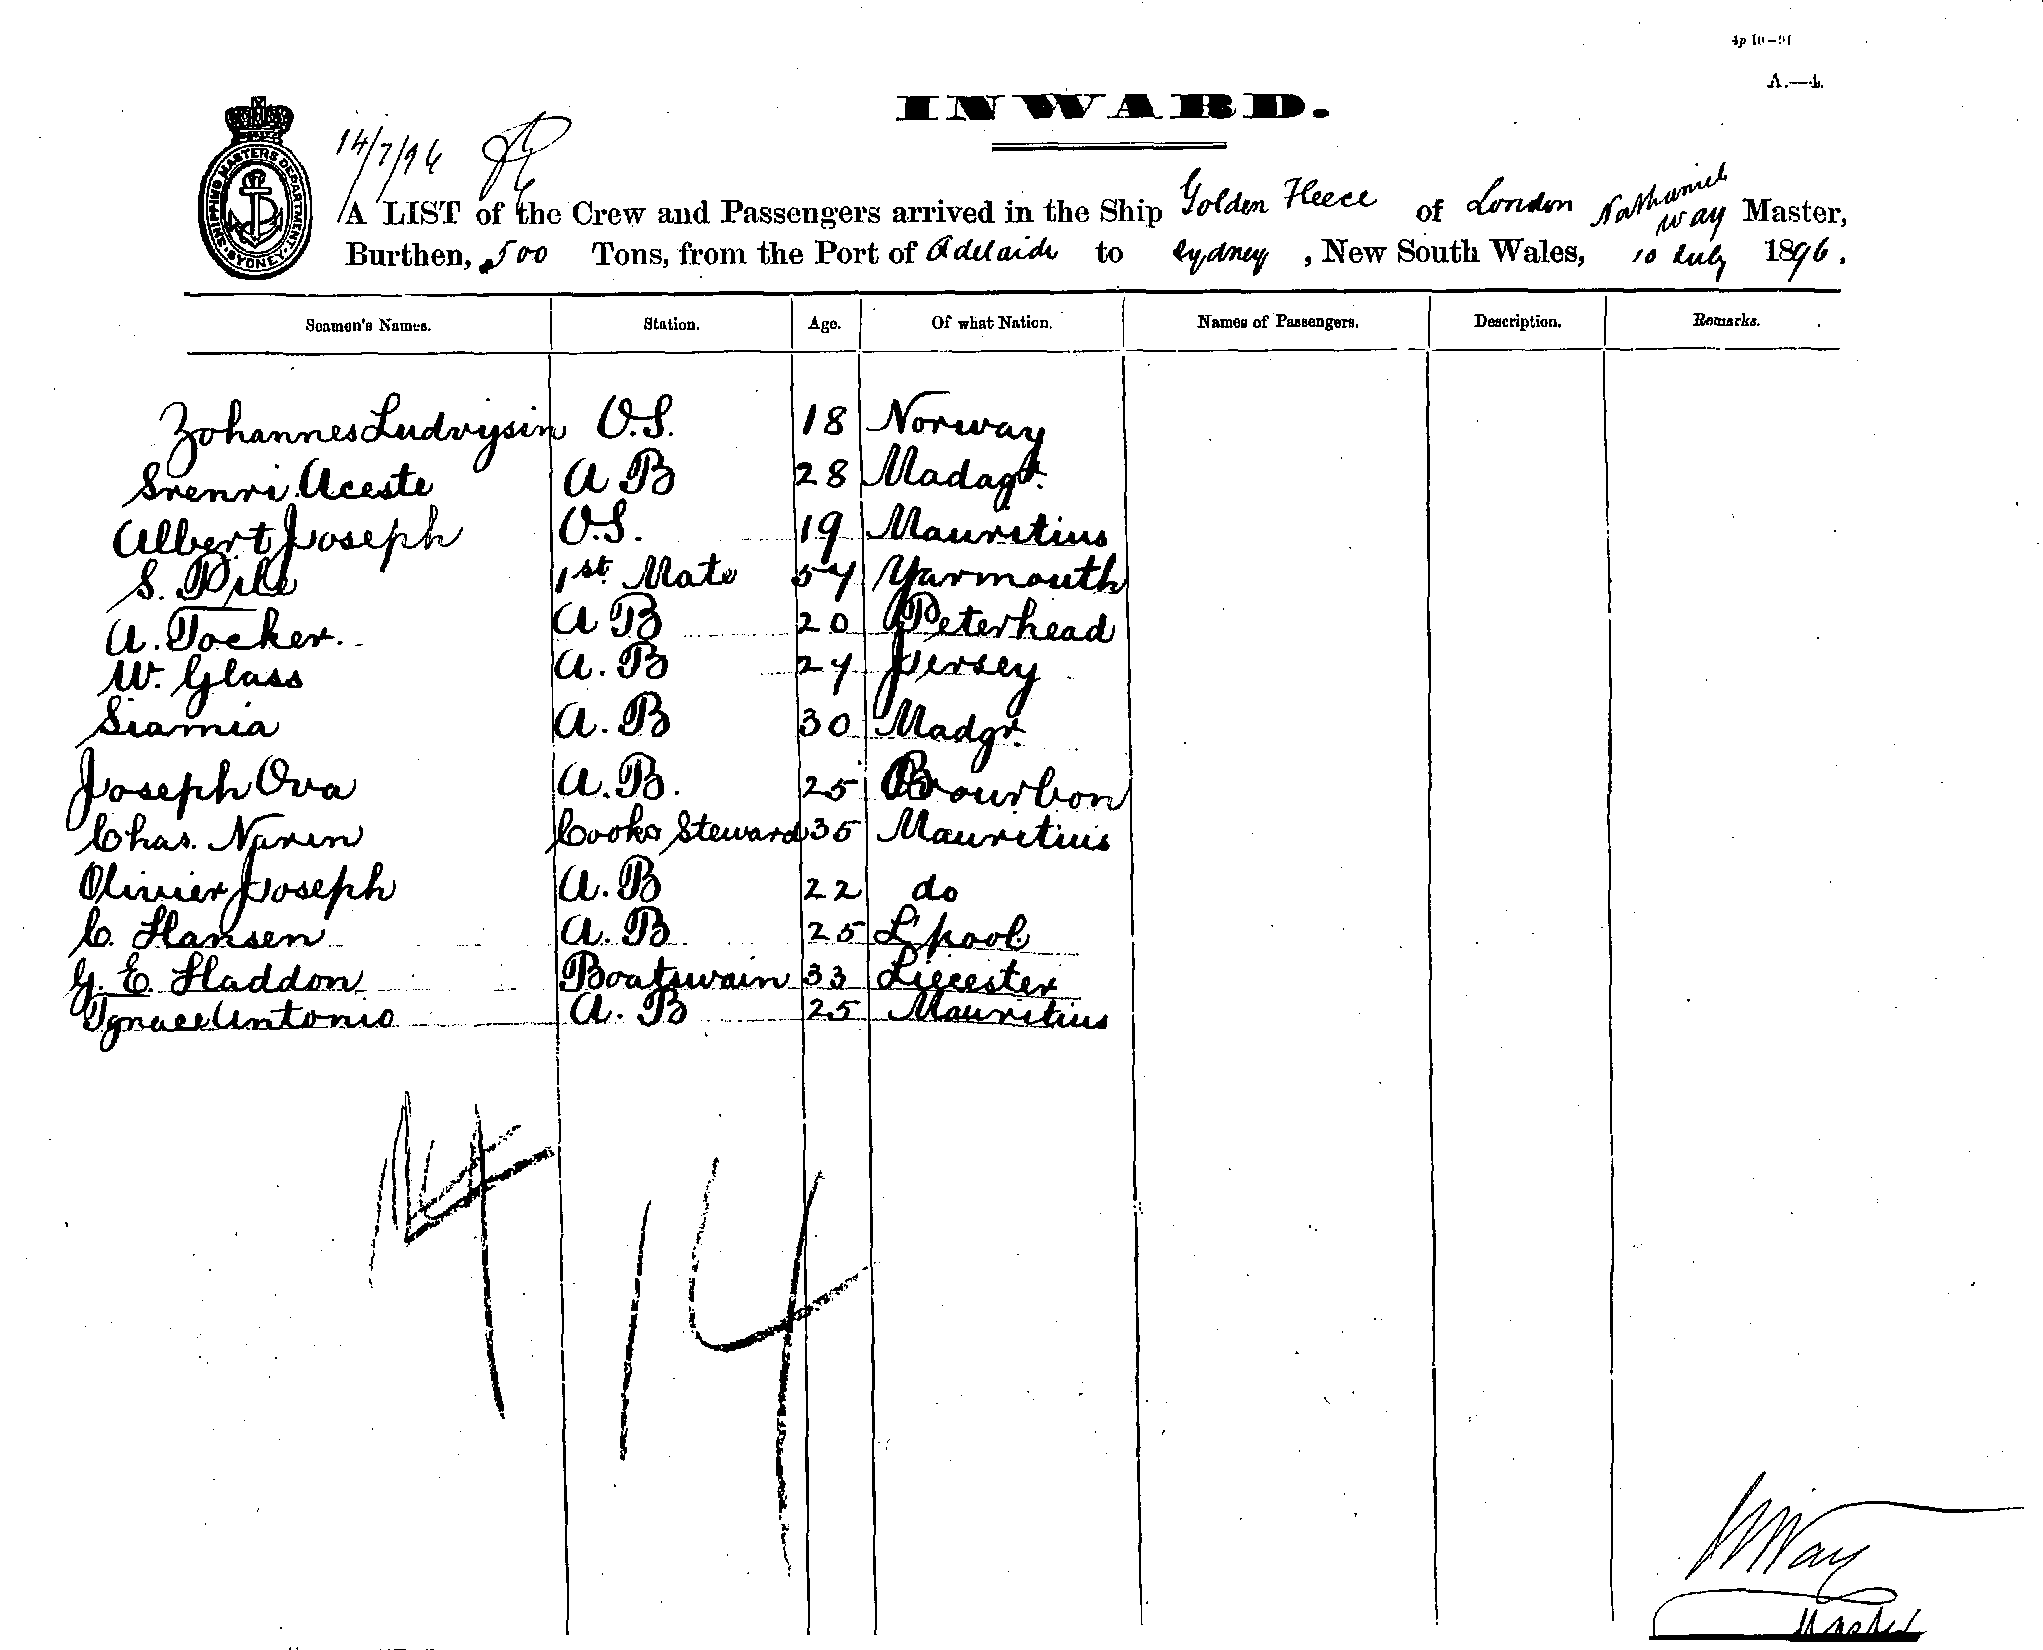 4p 10-91
A.—4.
INWARD.
SHIPPING MASTERS DEPARTMENT. SYDNEY.
14/7/96
A LIST of the Crew and Passengers arrived in the Ship Golden Fleece of London Nathaniel Way Master,
Burthen, 500 Tons, from the Port of Adelaide to Sydney, New South Wales, 10 July 1896.
Seamen's Names. Station. Age. Of what Nation. Names of Passengers. Description. Remarks.
Johannes Ludvigsin O.S. 18 Norway
Srenri Aceste A B 28 Madagr.
Albert Joseph O.S. 19 Mauritius
S. Pile 1st Mate 57 Yarmouth
A. Tocker. A B 20 Peterhead
W. Glass A. B 27 Jersey
Siamia A. B 30 Madgr.
Joseph Ova A. B. 25 Bourbon
Chas. Narin Cook & Steward 35 Mauritius
Olivier Joseph A. B 22 do
C. Hansen A. B 25 L'pool
G. E. Haddon Boatswain 33 Liecester
Ignace Antonio A. B 25 Mauritius
14
NWay
Master